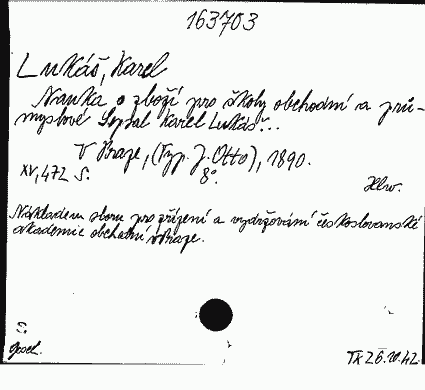 163703
Lukáš, Karel
Nauka o zboží pro školy obchodní a prů-
myslové Sepsal Karel Lukáš...
V Praze, (Typ. J. Otto), 1890.
XV, 472 S. 8°.
Nákladem sboru pro zřízení a vydržování českoslovanské
akademie obchodní v Praze.
Tk 26.10.42